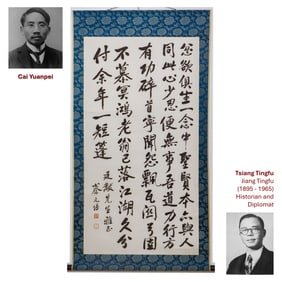 Cai Yuanpei
忿欲俱生一念中聖賢本亦與人
同此心少忍便無事吾道力行方
有功碎首寧聞怨飄瓦關弓固
不慕冥鴻老翁已落江湖久分
付余年一短篷
廷黻先生雅正
蔡元培
Tsiang Tingfu
Jiang Tingfu
(1895 - 1965)
Historian and
Diplomat